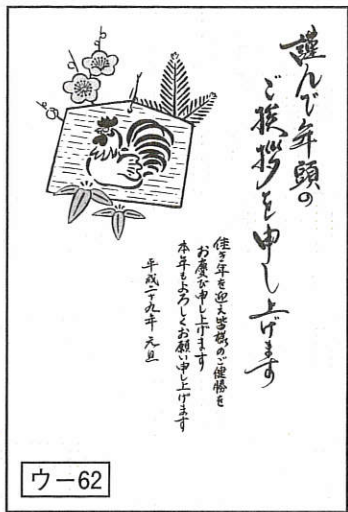 謹んで年頭の
ご挨拶を申し上げます
佳き年を迎え皆様のご健勝を
お慶び申し上げます
本年もよろしくお願い申し上げます
平成二十九年 元旦
ウー62